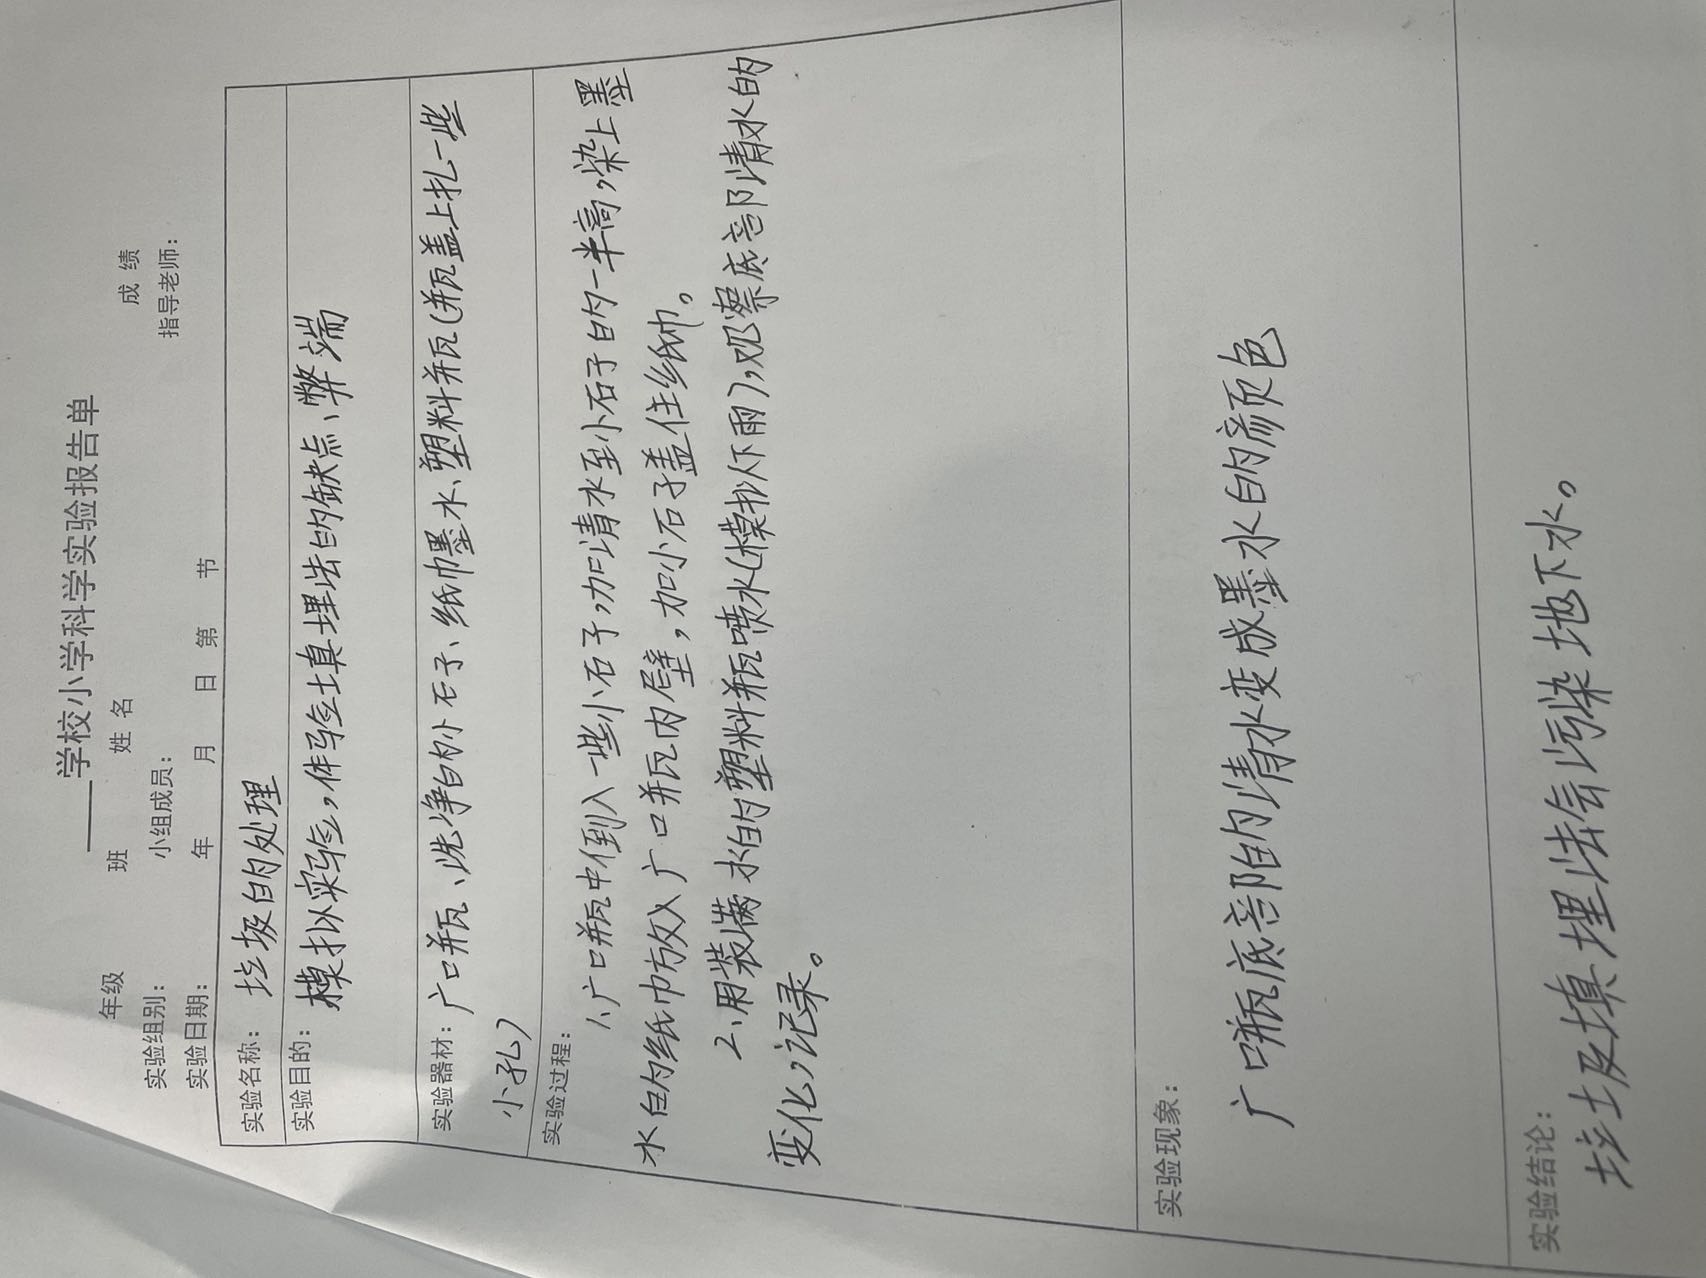 学校小学科学实验报告单
年级 班 姓名 成绩
实验组别： 小组成员： 指导老师：
实验日期： 年 月 日 第 节
实验名称： 垃圾的处理
实验目的： 模拟实验，体验填埋法的缺点、弊端
实验器材： 广口瓶、洗净的小石子、纸巾墨水、塑料瓶（瓶盖上扎一些
小孔）
实验过程：
1、广口瓶中倒入一些小石子，加清水至小石子的一半高，染上墨
水的纸巾放入广口瓶内壁，加小石子盖住纸巾。
2、用装满水的塑料瓶喷水（模拟下雨），观察底部清水的
变化，记录。
实验现象：
广口瓶底部的清水变成墨水的颜色
实验结论：
垃圾填埋法会污染地下水。